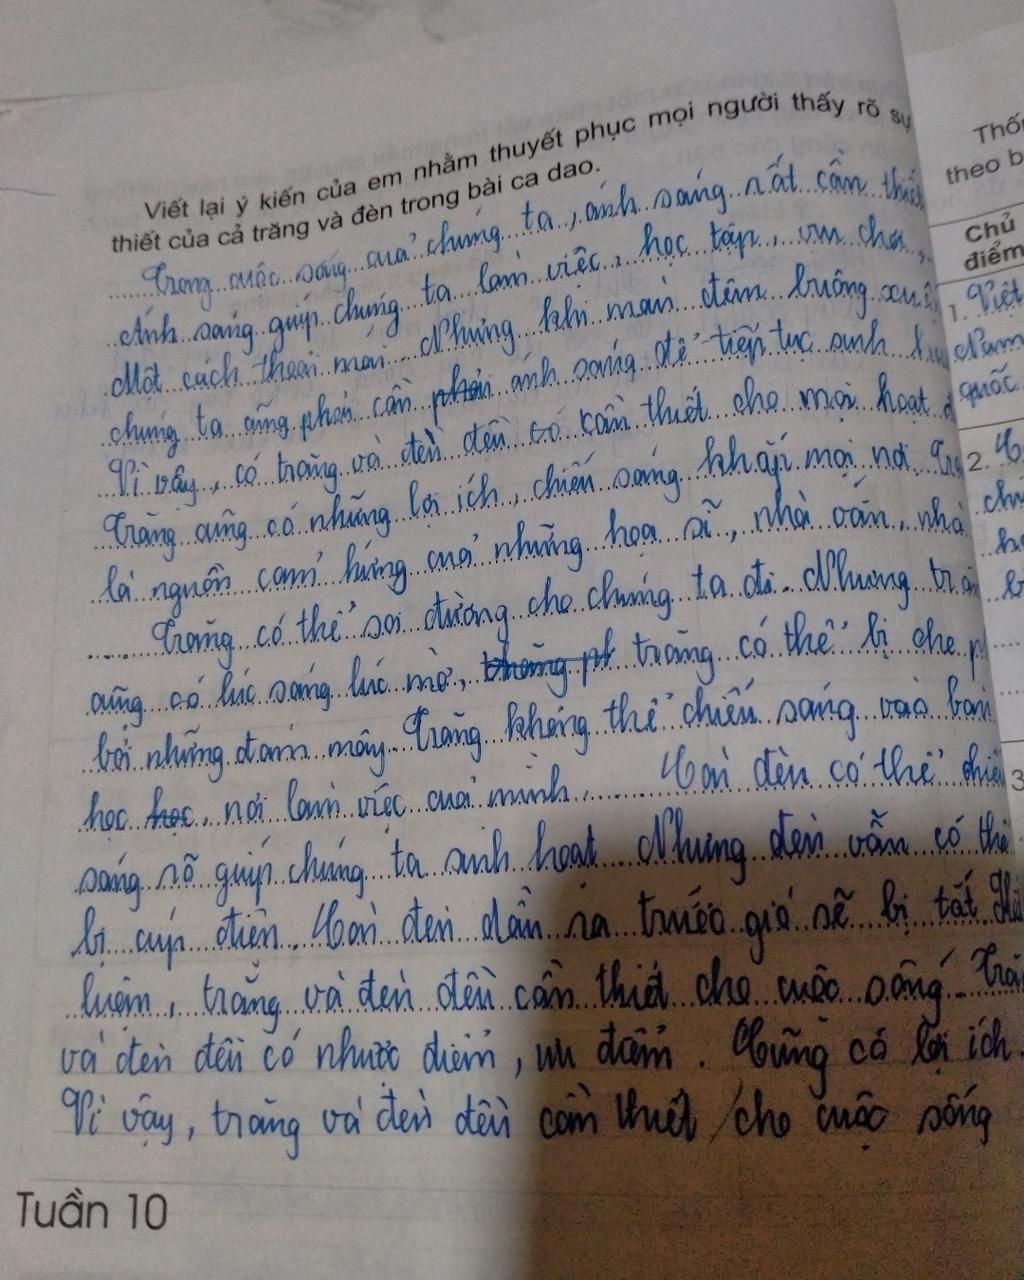 Viết lại ý kiến của em nhằm thuyết phục mọi người thấy rõ sự
thiết của cả trăng và đèn trong bài ca dao.
Trong cuộc sống của chúng ta, ánh sáng rất cần thiết
Ánh sáng giúp chúng ta làm việc, học tập, vui chơi,
Một cách thoải mái. Nhưng khi màn đêm buông xuống
chúng ta cũng phải cần ánh sáng để tiếp tục sinh
Vì vậy, có trăng và đèn đều có cần thiết cho mọi hoạt đ
Trăng cũng có những lợi ích, chiếu sáng khắp mọi nơi. Tr
là nguồn cảm hứng của những họa sĩ, nhà văn, nhà
Trăng có thể soi đường cho chúng ta đi. Nhưng tră
cũng có lúc sáng lúc mờ, trăng có thể bị che p
bởi những đám mây. Trăng không thể chiếu sáng vào bàn
học, nơi làm việc của mình. Còn đèn có thể chiếu
sáng rõ giúp chúng ta sinh hoạt. Nhưng đèn vẫn có thể
bị cúp điện. Còn đèn dầu ra trước gió sẽ bị tắt
luận, trăng và đèn đều cần thiết cho cuộc sống. Tră
và đèn đều có nhược điểm, ưu đãm. Cũng có lợi ích.
Vì vậy, trăng và đèn đều cần thiết cho cuộc sống
Tuần 10
Thốn
theo b
Chủ
điểm
1. Việt
Nam
quốc
2.
3